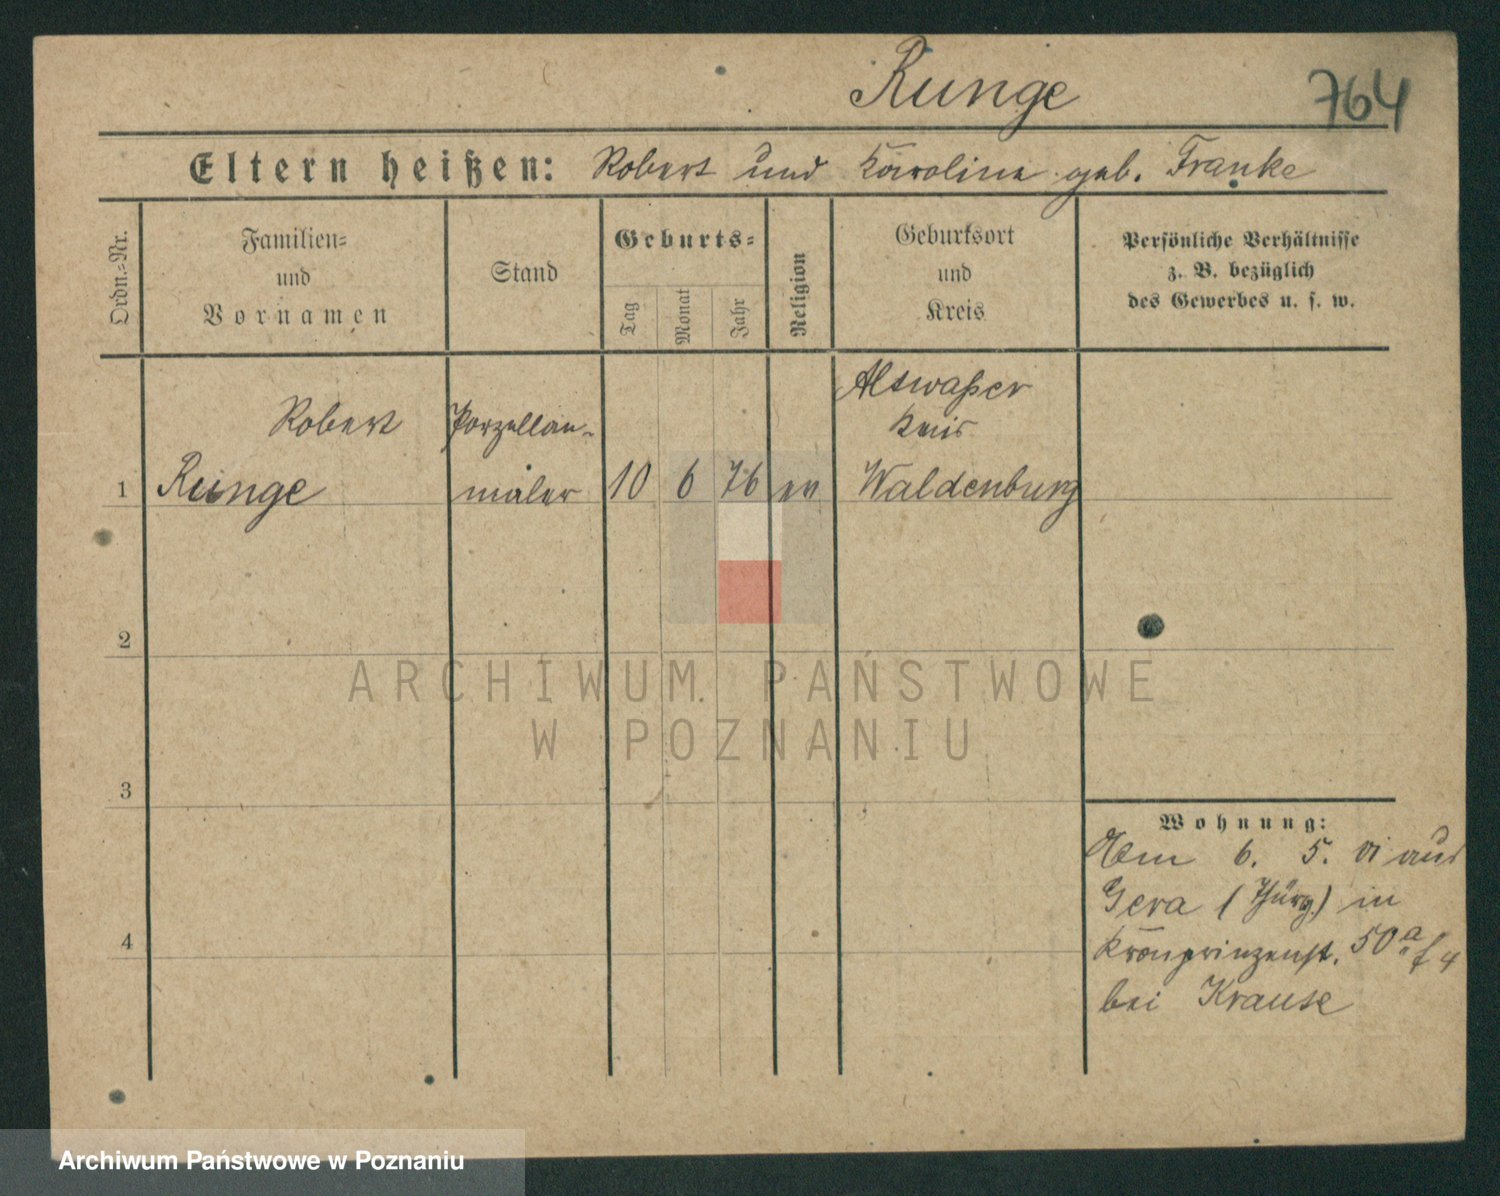 Runge 764
Eltern heißen: Robert und Karoline geb. Franke
Ordn.=Nr.
Familien=
und
Vornamen
Stand
Geburts=
Tag
Monat
Jahr
Religion
Geburtsort
und
Kreis
Persönliche Verhältnisse
z. B. bezüglich
des Gewerbes u. s. w.
Altwaßer
Robert Porzellan- Kreis
1 Runge maler 10 6 76 ev Waldenburg
2
ARCHIWUM PAŃSTWOWE
W POZNANIU
3
Wohnung:
6. 5. 01 aus
Gera (Thürg.) in
4
Kronprinzenst. 50a
bei Krause
Archiwum Państwowe w Poznaniu